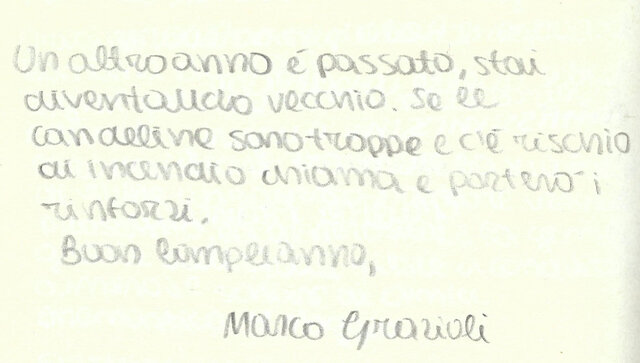 Un altro anno é passato, stai
diventando vecchio. Se le
candeline sono troppe e c'é rischio
di incendio chiama e porterò i
rinforzi.
Buon Compleanno,
Marco Grazioli